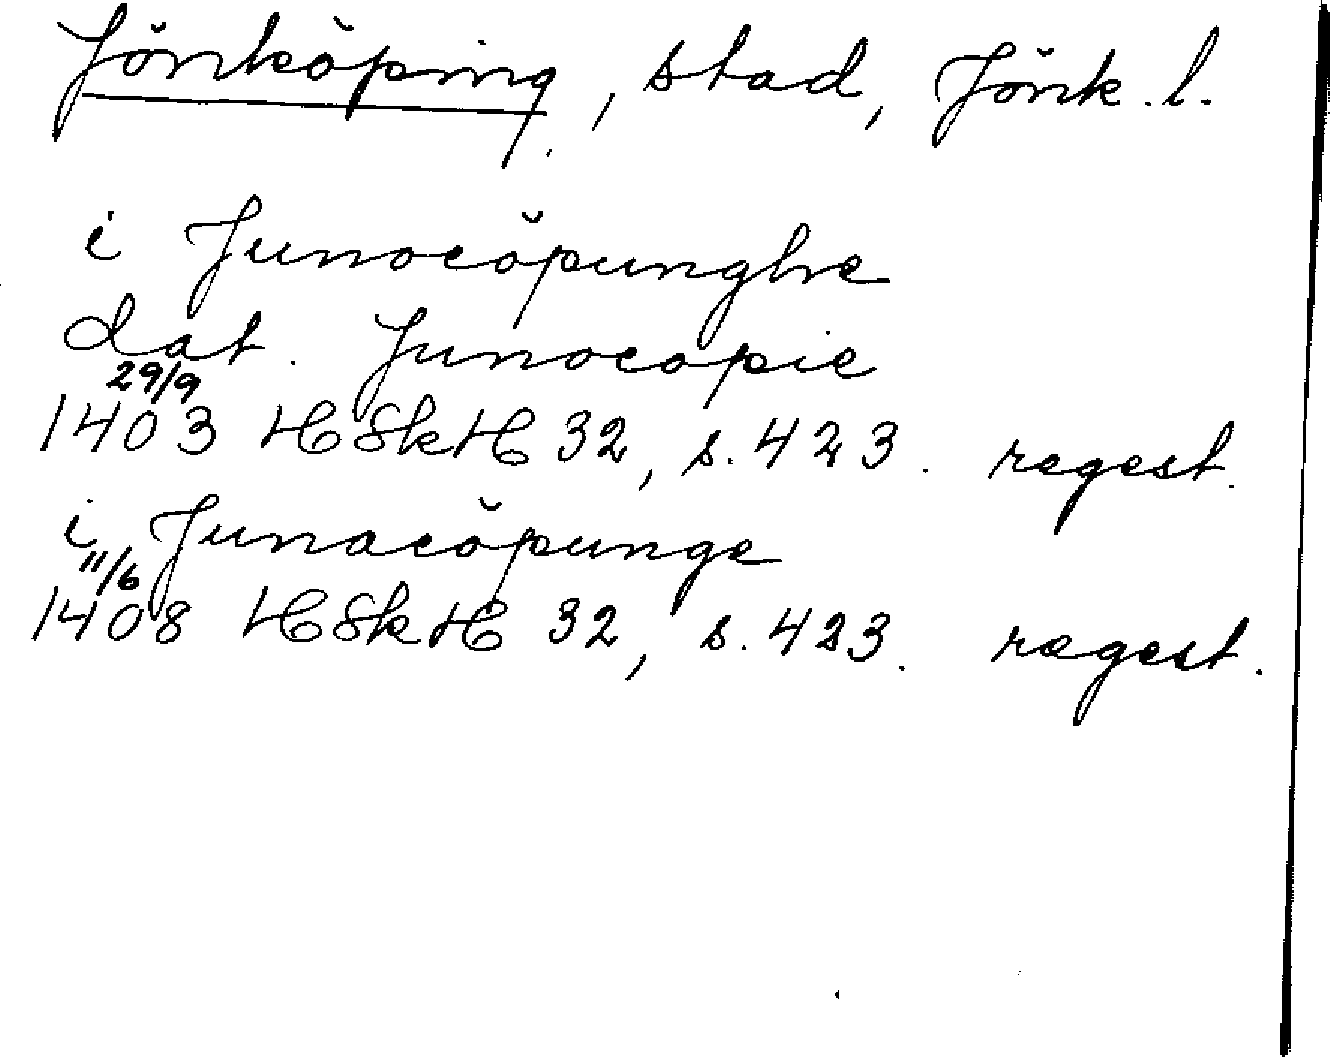 Jönköping, stad, Jönk. l.
i Junocöpunghe
dat. Junocopie
29/9
1403 HSkH 32, s. 423. regest.
i Junacöpunge
11/6
1408 HSkH 32, s. 423. regest.